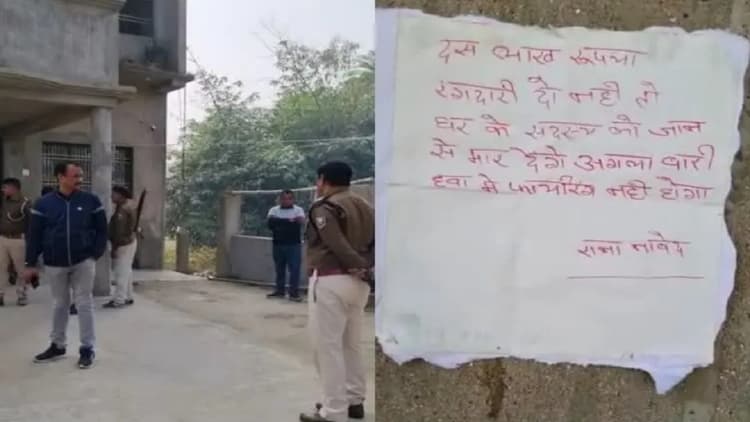 दस लाख रूपया
रंगदारी दो नही तो
घर के सदस्य को जान
से मार देंगे अगला बारी
हवा मे फायरिंग नही होगा
राजा नावेद